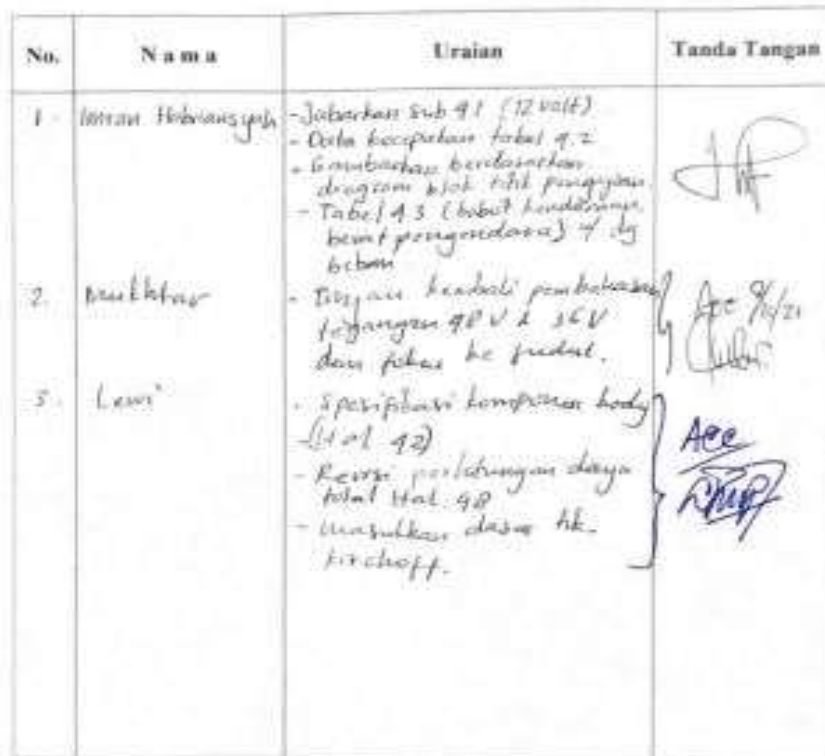 No. N a m a Uraian Tanda Tangan
1. Imran Habriansyah - Jabarkan sub 4.1 (12 volt)
- Data kecepatan tabel 4.2
- Gambarkan berdasarkan
diagram blok titik pengujian.
- Tabel 4.3 (bobot kendaraan,
berat pengendara) → dg
beban
2. Mukhtar - Tinjau kembali pembahasan
tegangan 48 V & 36 V
dan fokus ke judul.
Acc
3. Lewi - Spesifikasi komponen body
(Hal 42)
- Revisi perhitungan daya
total Hal. 48
- masukkan dasar hk.
kirchoff.
Acc